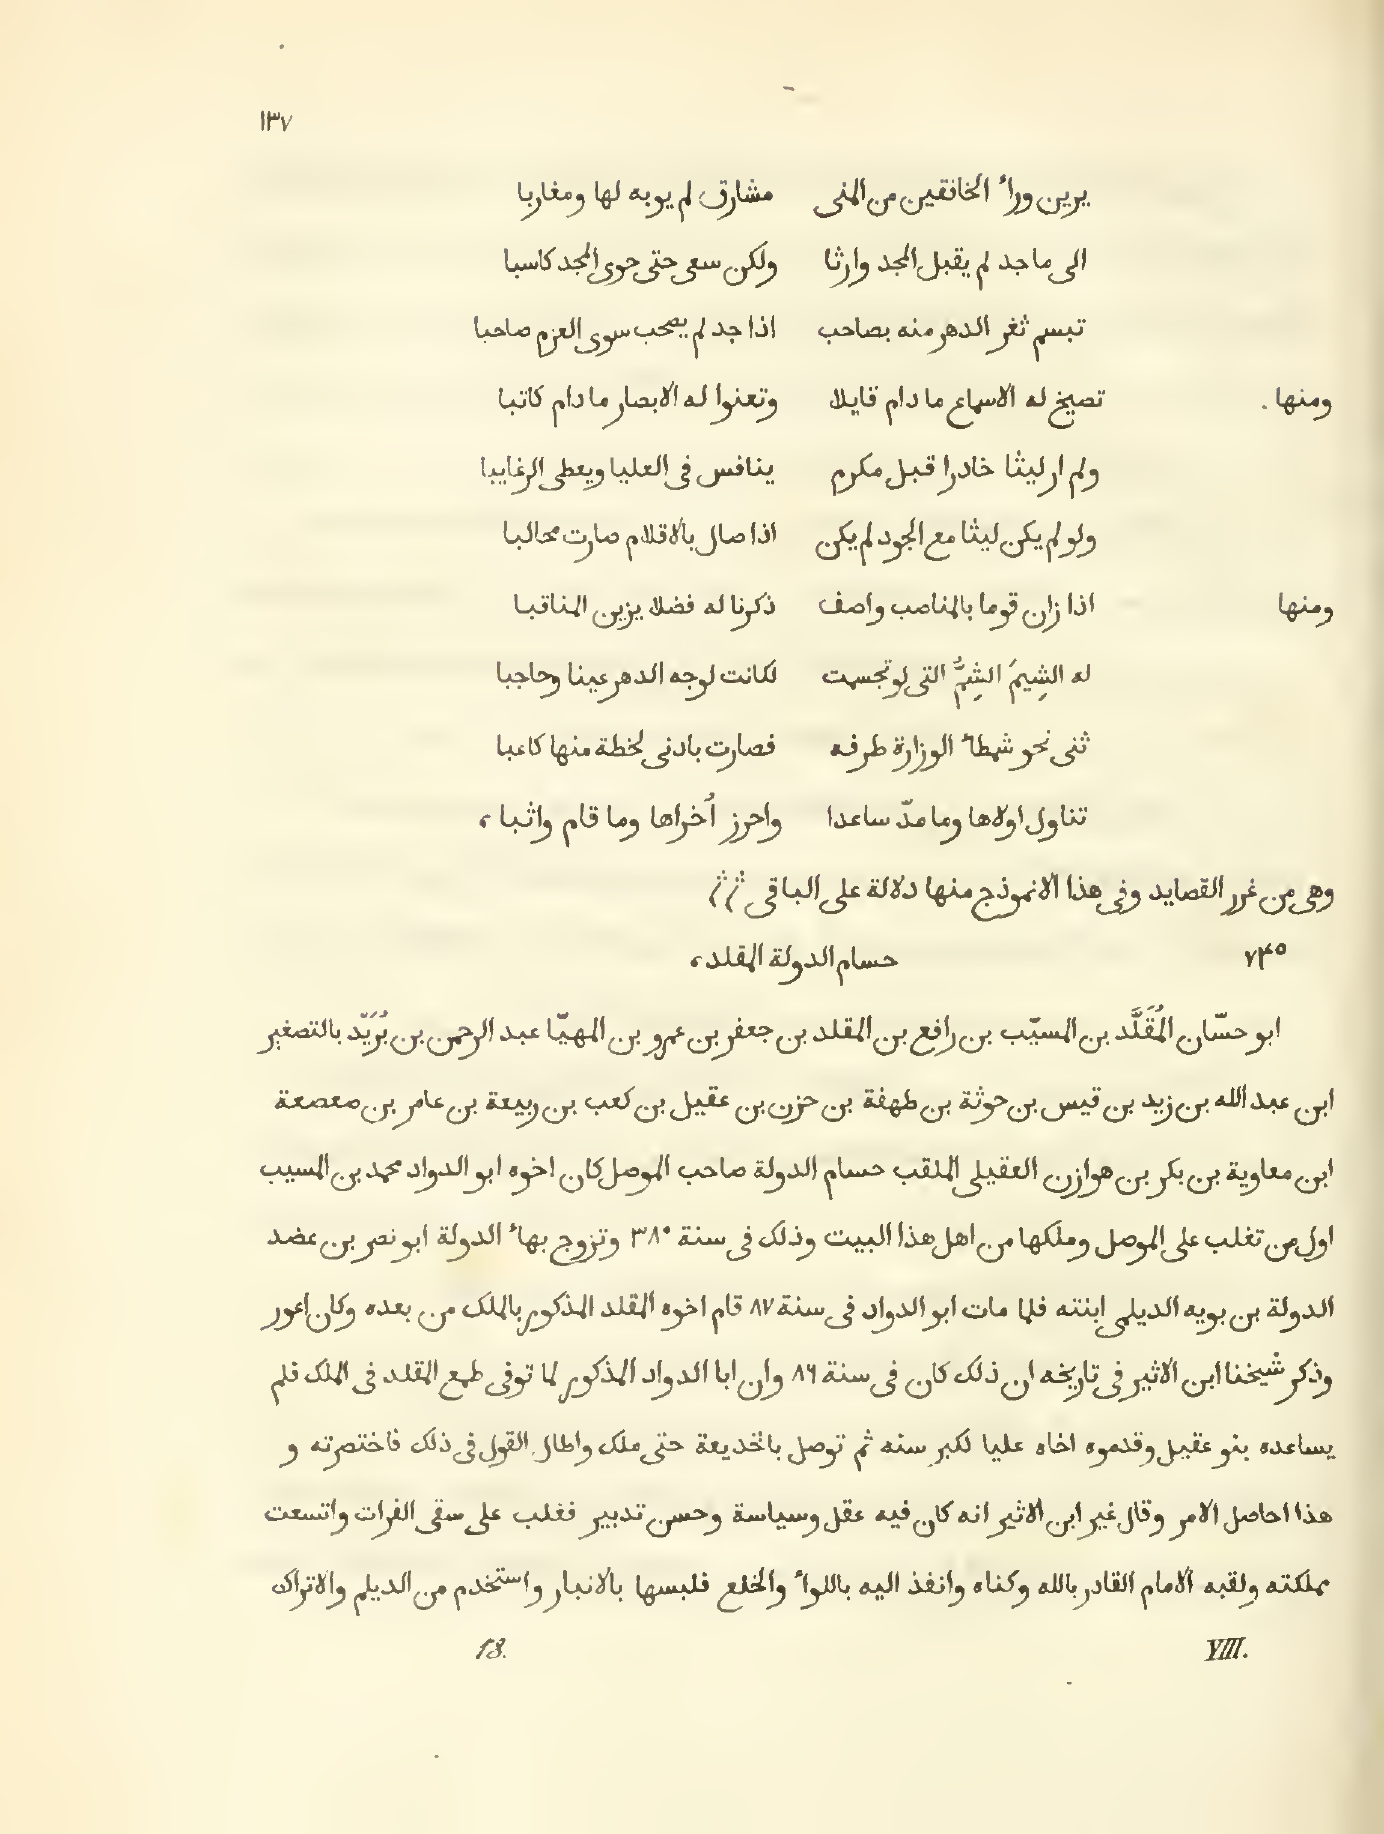 ١٣٧
يرين وراء الخافقين من المنى مشارق لم يوبه لها ومغاربا
الى ماجد لم يقبل المجد وارثا ولكن سعى حتى حوى المجد كاسبا
تبسم ثغر الدهر منه بصاحب اذا جد لم يصحب سوى العزم صاحبا
ومنها . تصيخ له الاسماع ما دام قايلا وتعنوا له الابصار ما دام كاتبا
ولم ار ليثا خادرا قبل مكرم ينافس فى العليا ويعطى الرغايبا
ولو لم يكن ليثا مع الجود لم يكن اذا صال بالاقلام صارت محالبا
ومنها اذا زان قوما بالمناصب واصف ذكرنا له فضلا يزين المناقبا
له الشِيمَ الشِمُّ التى لو تجسمت لكانت لوجه الدهر عينا وحاجبا
ثنى نحو شمطاء الوزارة طرفه فصارت بادنى لخطة منها كاعبا
تناول اولاها وما مدّ ساعدا واحرز اُخراها وما قام واثبا ،
وهى من غرر القصايد وفى هذا الانموذج منها دلالة على الباقى
٧٤٥ حسام الدولة المقلد ،
ابو حسّان المُقَلَّد بن المسيّب بن رافع بن المقلد بن جعفر بن عمرو بن المهيّا عبد الرحمن بن بُرَيّد بالتصغير
ابن عبد الله بن زيد بن قيس بن حوثة بن طهفة بن حزن بن عقيل بن كعب بن ربيعة بن عامر بن صعصعة
ابن معاوية بن بكر بن هوازن العقيلى الملقب حسام الدولة صاحب الموصل كان اخوه ابو الدواد محمد بن المسيب
اول من تغلب على الموصل وملكها من اهل هذا البيت وذلك فى سنة ٣٨٠ وتزوج بهاء الدولة ابو نصر بن عضد
الدولة بن بويه الديلمى ابنته فلما مات ابو الدواد فى سنة ٨٧ قام اخوه المقلد المذكور بالملك من بعده وكان اعور
وذكر شيخنا ابن الاثير فى تاريخه ان ذلك كان فى سنة ٨٦ وان ابا الدواد المذكور لما توفى طمع المقلد فى الملك فلم
يساعده بنو عقيل وقدموه اخاه عليا لكبر سنه ثم توصل بالخديعة حتى ملك واطال القول فى ذلك فاختصرته و
هذا احاصل الامر وقال غير ابن الاثير انه كان فيه عقل وسياسة وحسن تدبير فغلب على سقى الفرات واتسعت
مملكته ولقبه الامام القادر بالله وكناه وانفذ اليه باللواء والخلع فلبسها بالانبار واستخدم من الديلم والاتراك
VIII. 18.